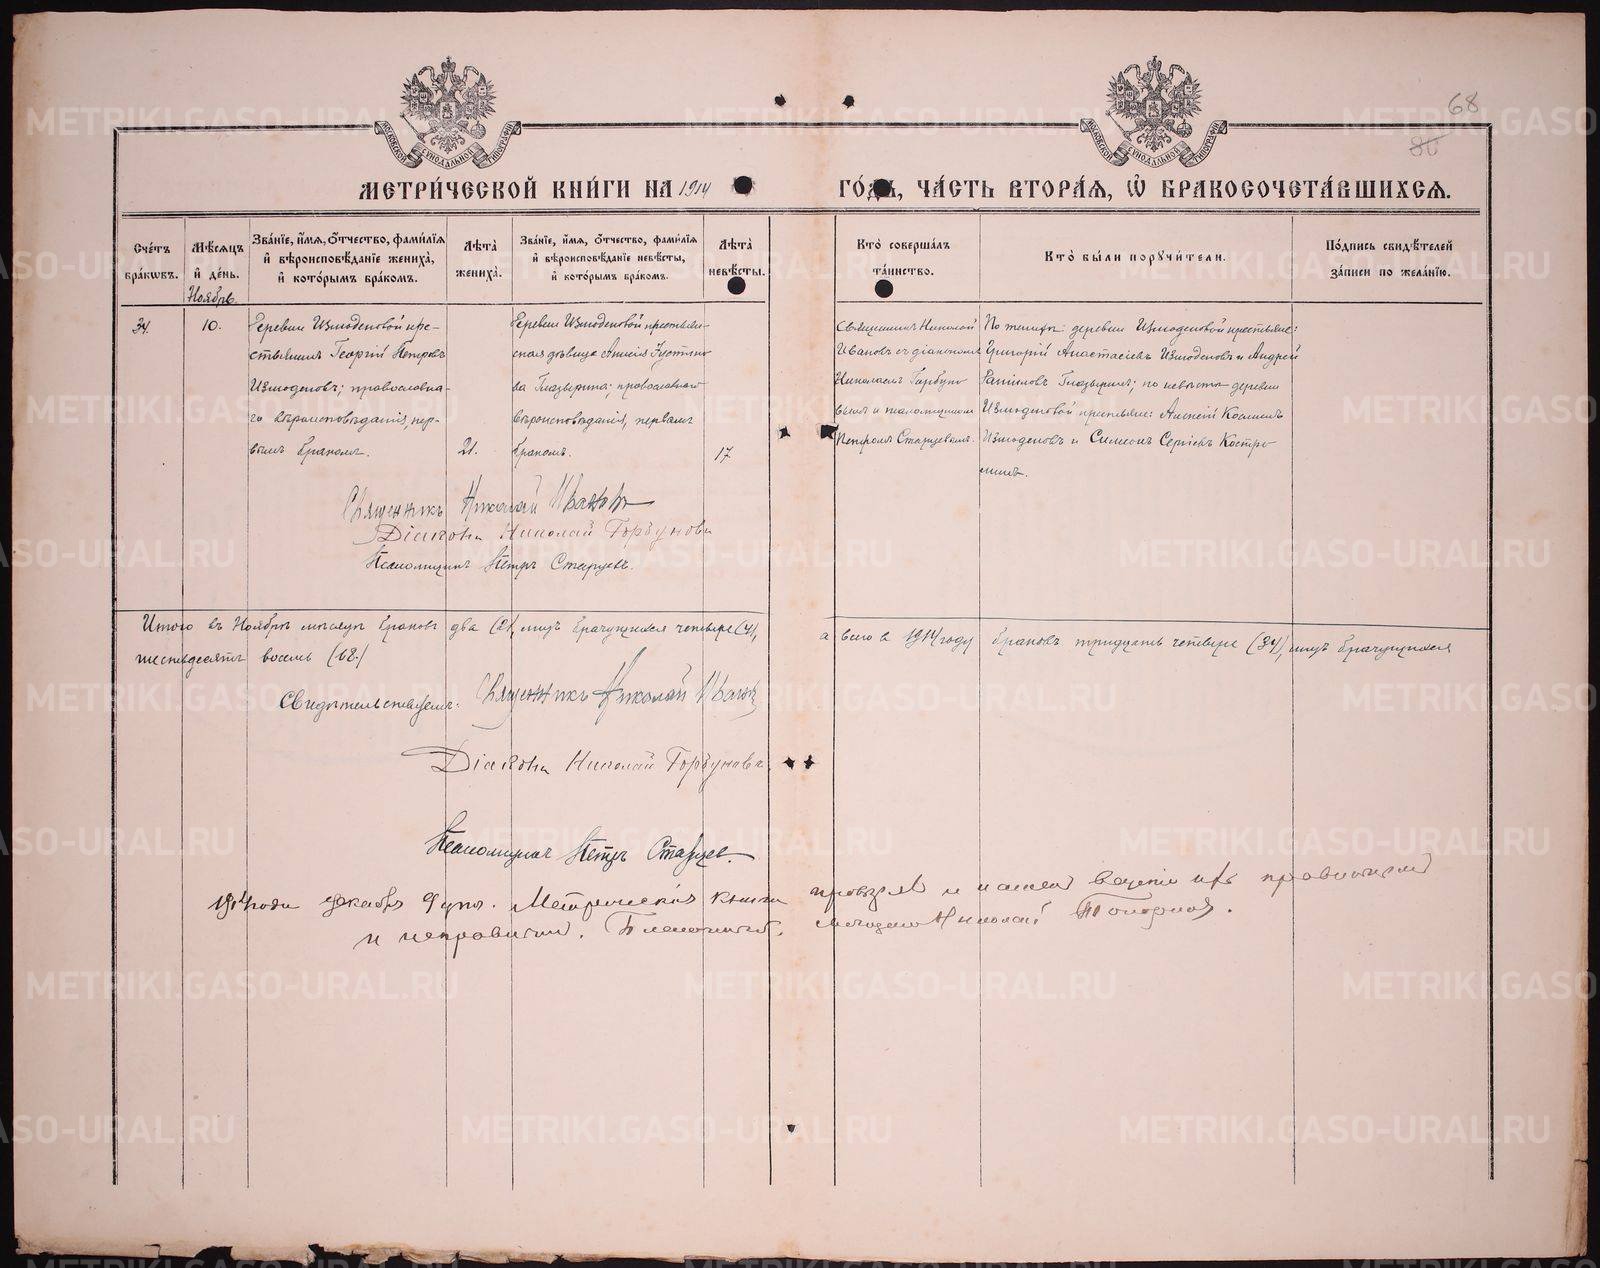 68
80
МОСКОВСКОЙ СѴНОДАЛЬНОЙ ТИПОГРАФІИ
МОСКОВСКОЙ СѴНОДАЛЬНОЙ ТИПОГРАФІИ
МЕТРИ́ЧЕСКОЙ КНИ́ГИ НА 1914 ГО́ДЪ, ЧА́СТЬ ВТОРА́Ѧ, Ѿ БРАКОСОЧЕТА́ВШИХСѦ.
Сче́тъ бра́кѡвъ.
Мѣ́сѧцъ и҆ де́нь.
Ноябрь.
Зва́нїе, и҆́мѧ, ѻ҆́тчество, фами́лїѧ
и҆ вѣроисповѣ́данїе жениха̀,
и҆ кото́рымъ бра́комъ.
Лѣ́та жениха̀.
Зва́нїе, и҆́мѧ, ѻ҆́тчество, фами́лїѧ
и҆ вѣроисповѣ́данїе невѣ́сты,
и҆ кото́рымъ бра́комъ.
Лѣ́та невѣ́сты.
Кто̀ соверша́лъ та́инство.
Кто̀ бы́ли порꙋчи́тели.
По́дпись свидѣ́телей за́писи по жела́нїю.
34.
10.
Деревни Измоденовой кре-
стьянинъ Георгій Петровъ
Измоденовъ; православна-
го вѣроисповѣданія, пер-
вымъ бракомъ.
21.
Деревни Измоденовой крестьян-
ская дѣвица Анисія Іустино-
ва Глазырина; православнаго
вѣроисповѣданія, первымъ
бракомъ.
17.
Священникъ Николай
Ивановъ съ діакономъ
Николаемъ Горбуно-
вымъ и псаломщикомъ
Петромъ Старцевымъ.
По женихѣ: деревни Измоденовой крестьяне:
Григорій Анастасіевъ Измоденовъ и Андрей
Глазыринъ; по невѣстѣ деревни
Измоденовой крестьяне: Алексій Косминъ
Измоденовъ и Симеонъ Сергіевъ Костро-
минъ.
Священникъ Николай Ивановъ
Діаконъ Николай Горбуновъ
Псаломщикъ Петръ Старцевъ.
Итого въ Ноябрѣ мѣсяцѣ браковъ два (2), лицъ брачущихся четверо (4), а всего въ 1914 году браковъ тридцать четыре (34), лицъ брачущихся
шестьдесятъ восемь (68.)
Свидѣтельствуемъ: Священникъ Николай Ивановъ
Діаконъ Николай Горбуновъ.
Псаломщикъ Петръ Старцев.
1914 года декабря 9 дня. Метрическія книги провѣрялъ и нашелъ веденіе ихъ правильнымъ
и исправнымъ. Благочинный, Николай Топорковъ.
METRIKI.GASO-URAL.RU